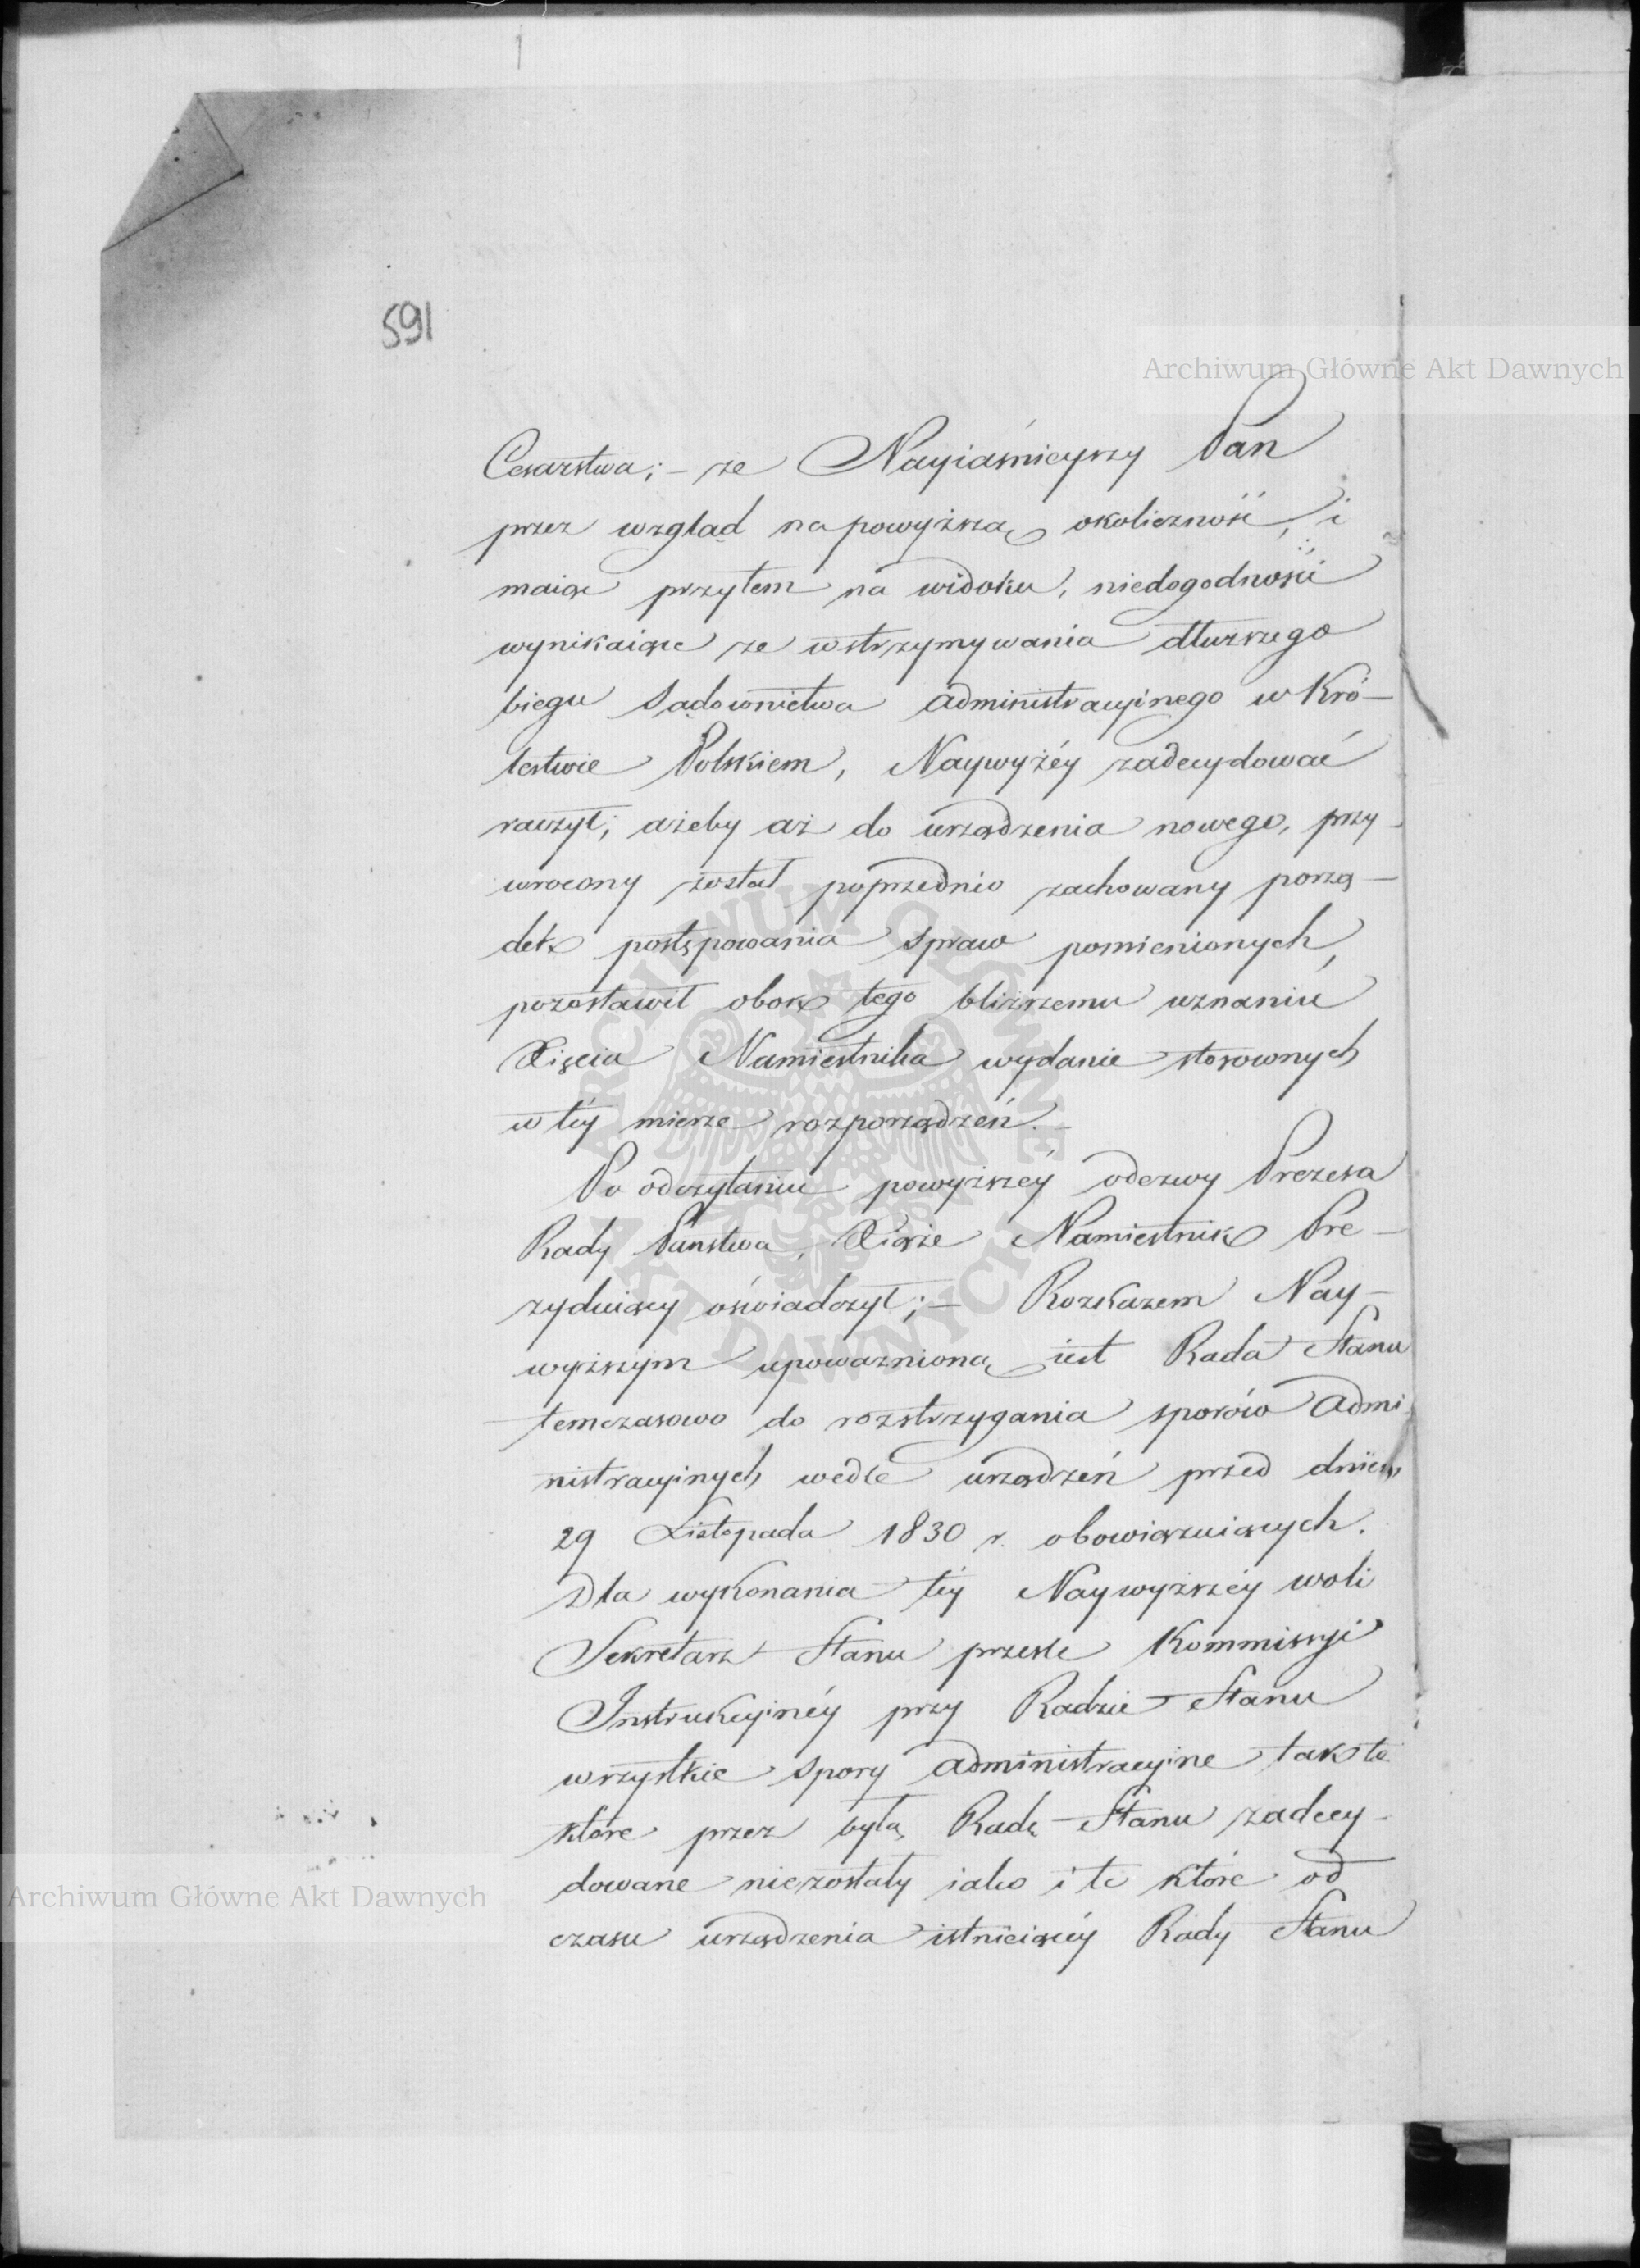 591
Archiwum Główne Akt Dawnych
Cesarstwa; – że Nayiaśnieyszy Pan
przez wzgląd na powyższą okoliczność, i
maiąc przytem na widoku, niedogodności
wynikaiące ze wstrzymywania dłuższego
biegu Sądownictwa Administracyinego w Kró–
lestwie Polskiem, Naywyżéy zadecydować
raczył; ażeby aż do urządzenia nowego, przy
wrocony został poprzednio zachowany porzą–
dek postępowania spraw pomienionych,
pozostawił obok tego bliższemu uznaniu
Xięcia Namiestnika wydanie stosownych
w téy mierze rozporządzeń. –
Po odczytaniu powyższéy odezwy Prezesa
Rady Państwa, Xiąże Namiestnik Pre–
zyduiący oświadczył; – Rozkazem Nay–
wyższym upoważnioną iest Rada Stanu
temczasowo do rozstrzygania sporów Admi
nistracyinych wedle urządzeń przed dniem
29 Listopada 1830 r. obowiązuiących.
Dla wykonania téy Naywyższéy woli
Sekretarz Stanu prześle Kommissyi
Instrukcyinéy przy Radzie Stanu
wszystkie spory Administracyine tak te
które przez byłą Radę Stanu zadecy–
dowane niezostały iako i te które od
czasu urządzenia istnieiącéy Rady Stanu
Archiwum Główne Akt Dawnych
ARCHIWUM GŁÓWNE
AKT DAWNYCH